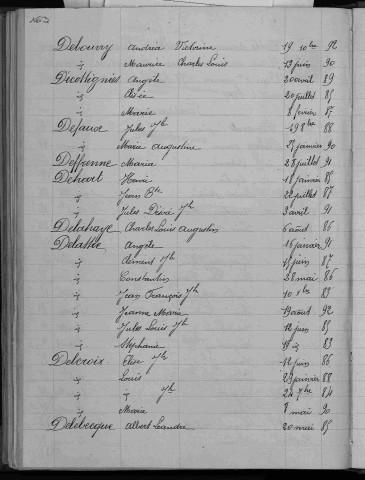 Debouvry Andréa Victorine 19 10bre 92
id Maurice Charles Louis 13 juin 90
Decottignies Angèle 20 avril 89
id Elisée 20 juillet 85
id Marie 8 février 87
Defaux Jules Jh 19 8bre 88
id Marie Augustine 21 janvier 90
Deffrenne Maria 28 juillet 91
Dehart 18 janvier 85
id Jean Bte 22 juillet 87
id Jules Désiré Jh 3 avril 91
Delahaye Charles Louis Augustin 6 août 86
Delattre Angèle 16 janvier 91
id Clément Jh 15 juin 87
id Constantin 28 mai 86
id Jean François Jh 10 83
id Jeanne Marie 19 août 92
id Jules Louis Jh 12 juin 85
id Stéphanie 19 id 83
Delcroix Elise Jh 12 juin 86
id Louis 29 janvier 88
id id Jh 24 7bre 84
id Maria 1 mai 90
Delebecque Albert Léandre 20 mai 85